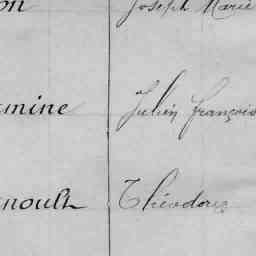 on Joseph Marie
rmine Julien François
noult Théodore